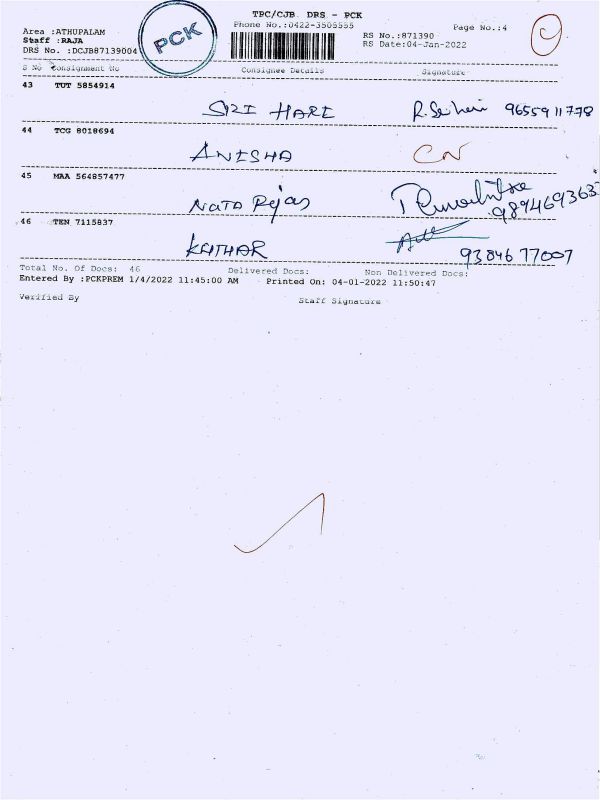 TPC/CJB DRS - PCK
Phone No.:0422-3505555
Page No.:4
Area :ATHUPALAM
Staff :RAJA
DRS No. :DCJB87139004
PCK
RS No.:871390
RS Date:04-Jan-2022
S No Consignment No Consignee Details Signature
43 TUT 5854914
SRI HARI R.Srihari 9655911778
44 TCG 8018694
ANISHA CN
45 MAA 564857477
NATA Rajas
9894693637
46 TEN 7115837
KATHAR 93846 77007
Total No. Of Docs: 46 Delivered Docs: Non Delivered Docs:
Entered By :PCKPREM 1/4/2022 11:45:00 AM Printed On: 04-01-2022 11:50:47
Verified By Staff Signature